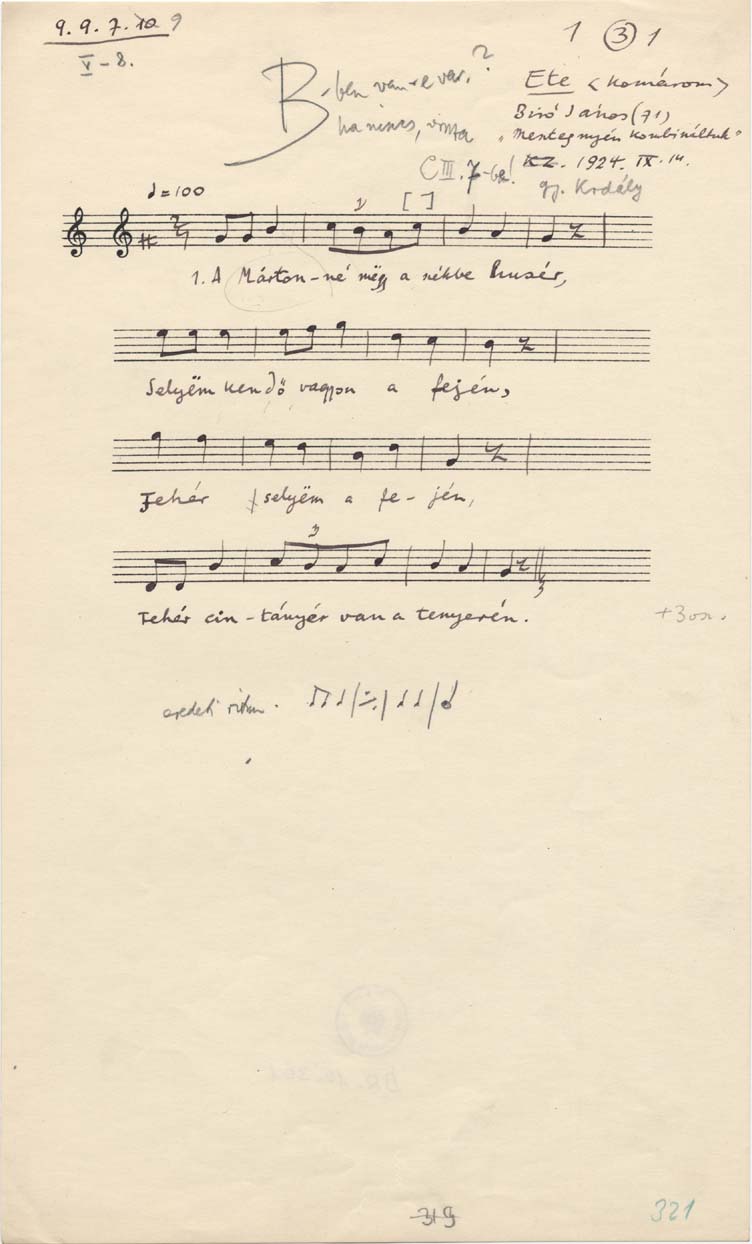 9. 9. 7. 10 9
V - 8.
1 3 1
B-ben van-e var.?
ha nincs, vissza
C III. 7-be!
Ete <Komárom>
Bíró János (71)
"Mentegnyén kombináltuk"
KZ. 1924. IX. 14.
gy. Kodály
♩=100
3 [ ]
1. A Márton-né mëgy a
Selyëm kendő vagyon a fején,
Fehér selyëm a fe-jén,
3
Fehér cin-tányér van a tenyerén.
+3on.
eredeti ritm.
319
321